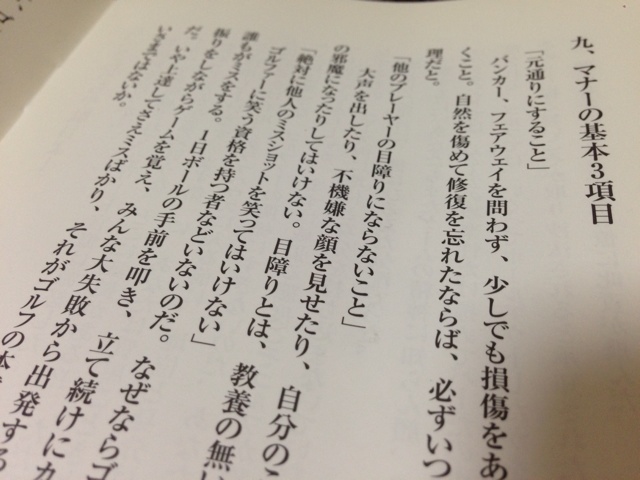 九、マナーの基本3項目
「元通りにすること」
バンカー、フェアウェイを問わず、少しでも損傷をあ
くこと。自然を傷めて修復を忘れたならば、必ずいつ
理だと。
「他のプレーヤーの目障りにならないこと」
大声を出したり、不機嫌な顔を見せたり、自分のこ
の邪魔になったりしてはいけない。目障りとは、教養の無い
「絶対に他人のミスショットを笑ってはいけない」
ゴルファーに笑う資格を持つ者などいないのだ。なぜならゴ
誰もがミスをする。1日ボールの手前を叩き、立て続けにカ
振りをしながらゲームを覚え、みんな大失敗から出発する
だ。いや上達してさえミスばかり、それがゴルフの本
いざまではないか。